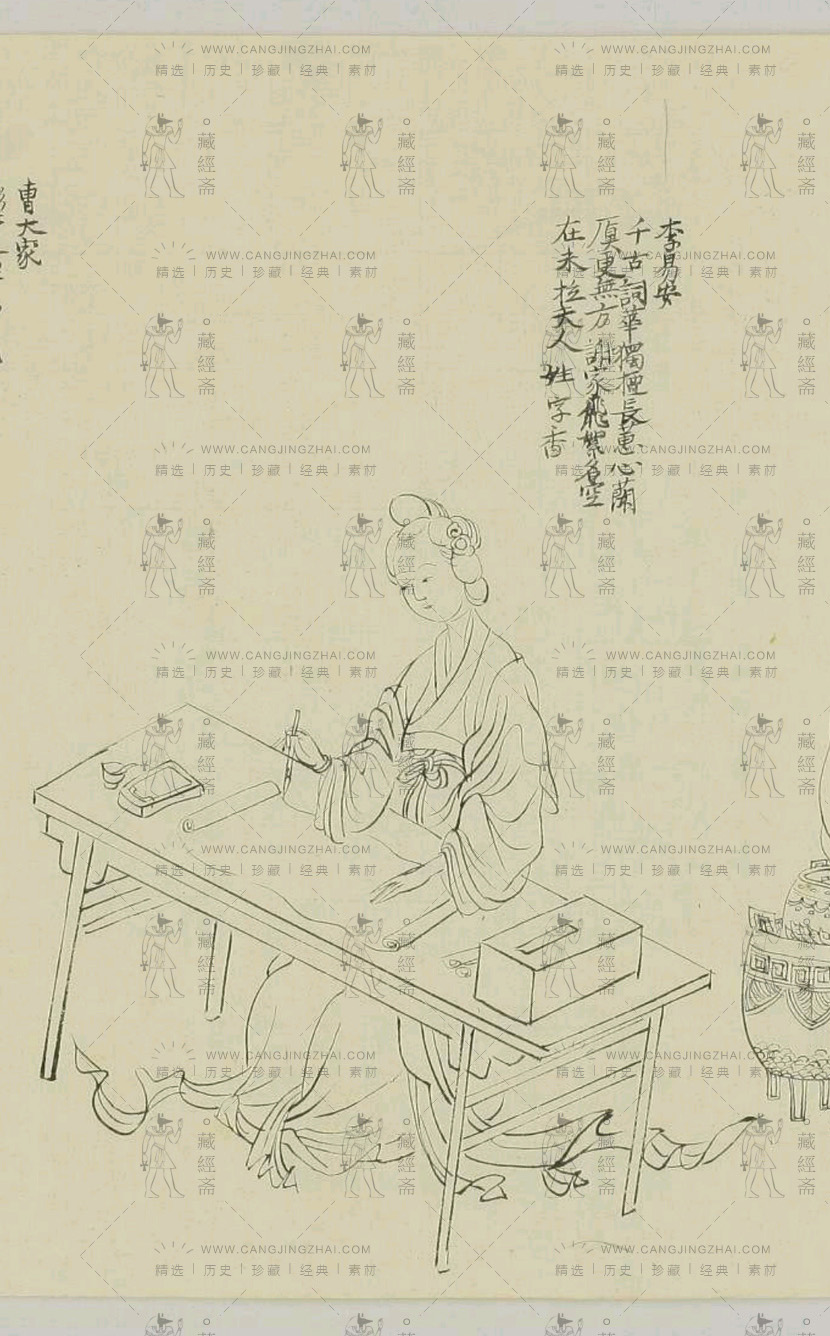 李易安
千古詞華獨擅長蕙心蘭
質更無方謝家飛絮名空
在未拉夫人姓字香
曹大家
WWW.CANGJINGZHAI.COM
精选 | 历史 | 珍藏 | 经典 | 素材
藏經斋